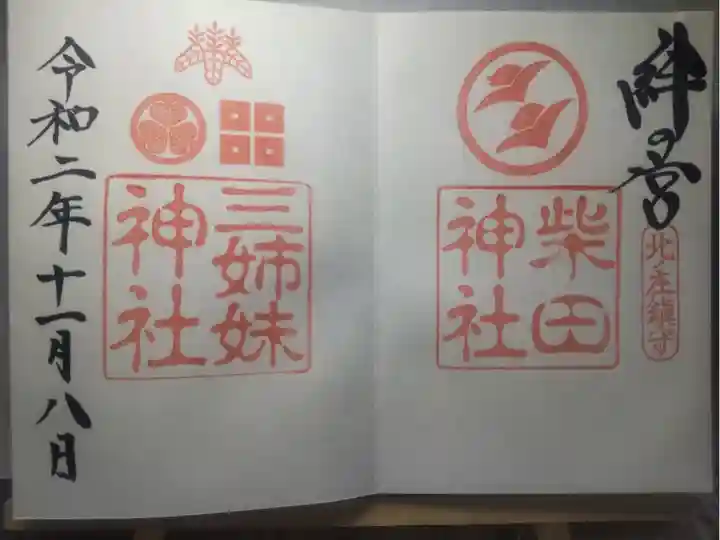 絆の宮
北ノ庄鎮守
柴田
神社
三姉妹
神社
令和二年十一月八日